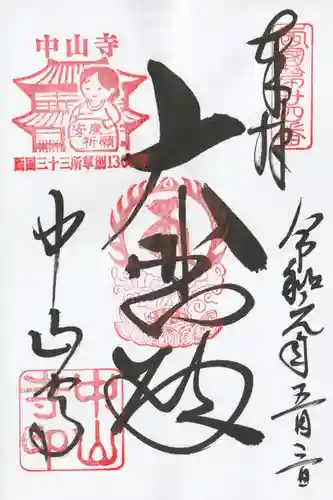 奉拝
西國第廿四番
令和元年五月二日
大悲殿
中山寺
中山寺
安産祈願
西国三十三所草創1300年
中山寺
中山寺印